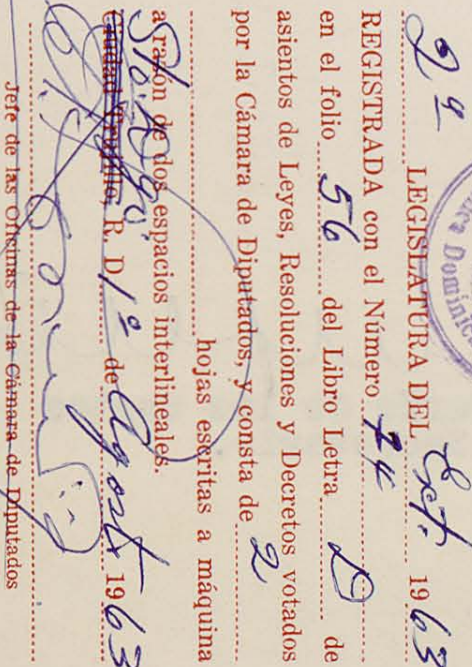 2ª LEGISLATURA DEL Ext. 1963
REGISTRADA con el Número 74
en el folio 56 del Libro Letra D de
asientos de Leyes, Resoluciones y Decretos votados
por la Cámara de Diputados, y consta de 2
hojas escritas a máquina
a razón de dos espacios interlineales.
Sto. Dgo.
Ciudad Trujillo, R. D. 1º de Agosto 1963
Jefe de las Oficinas de la Cámara de Diputados